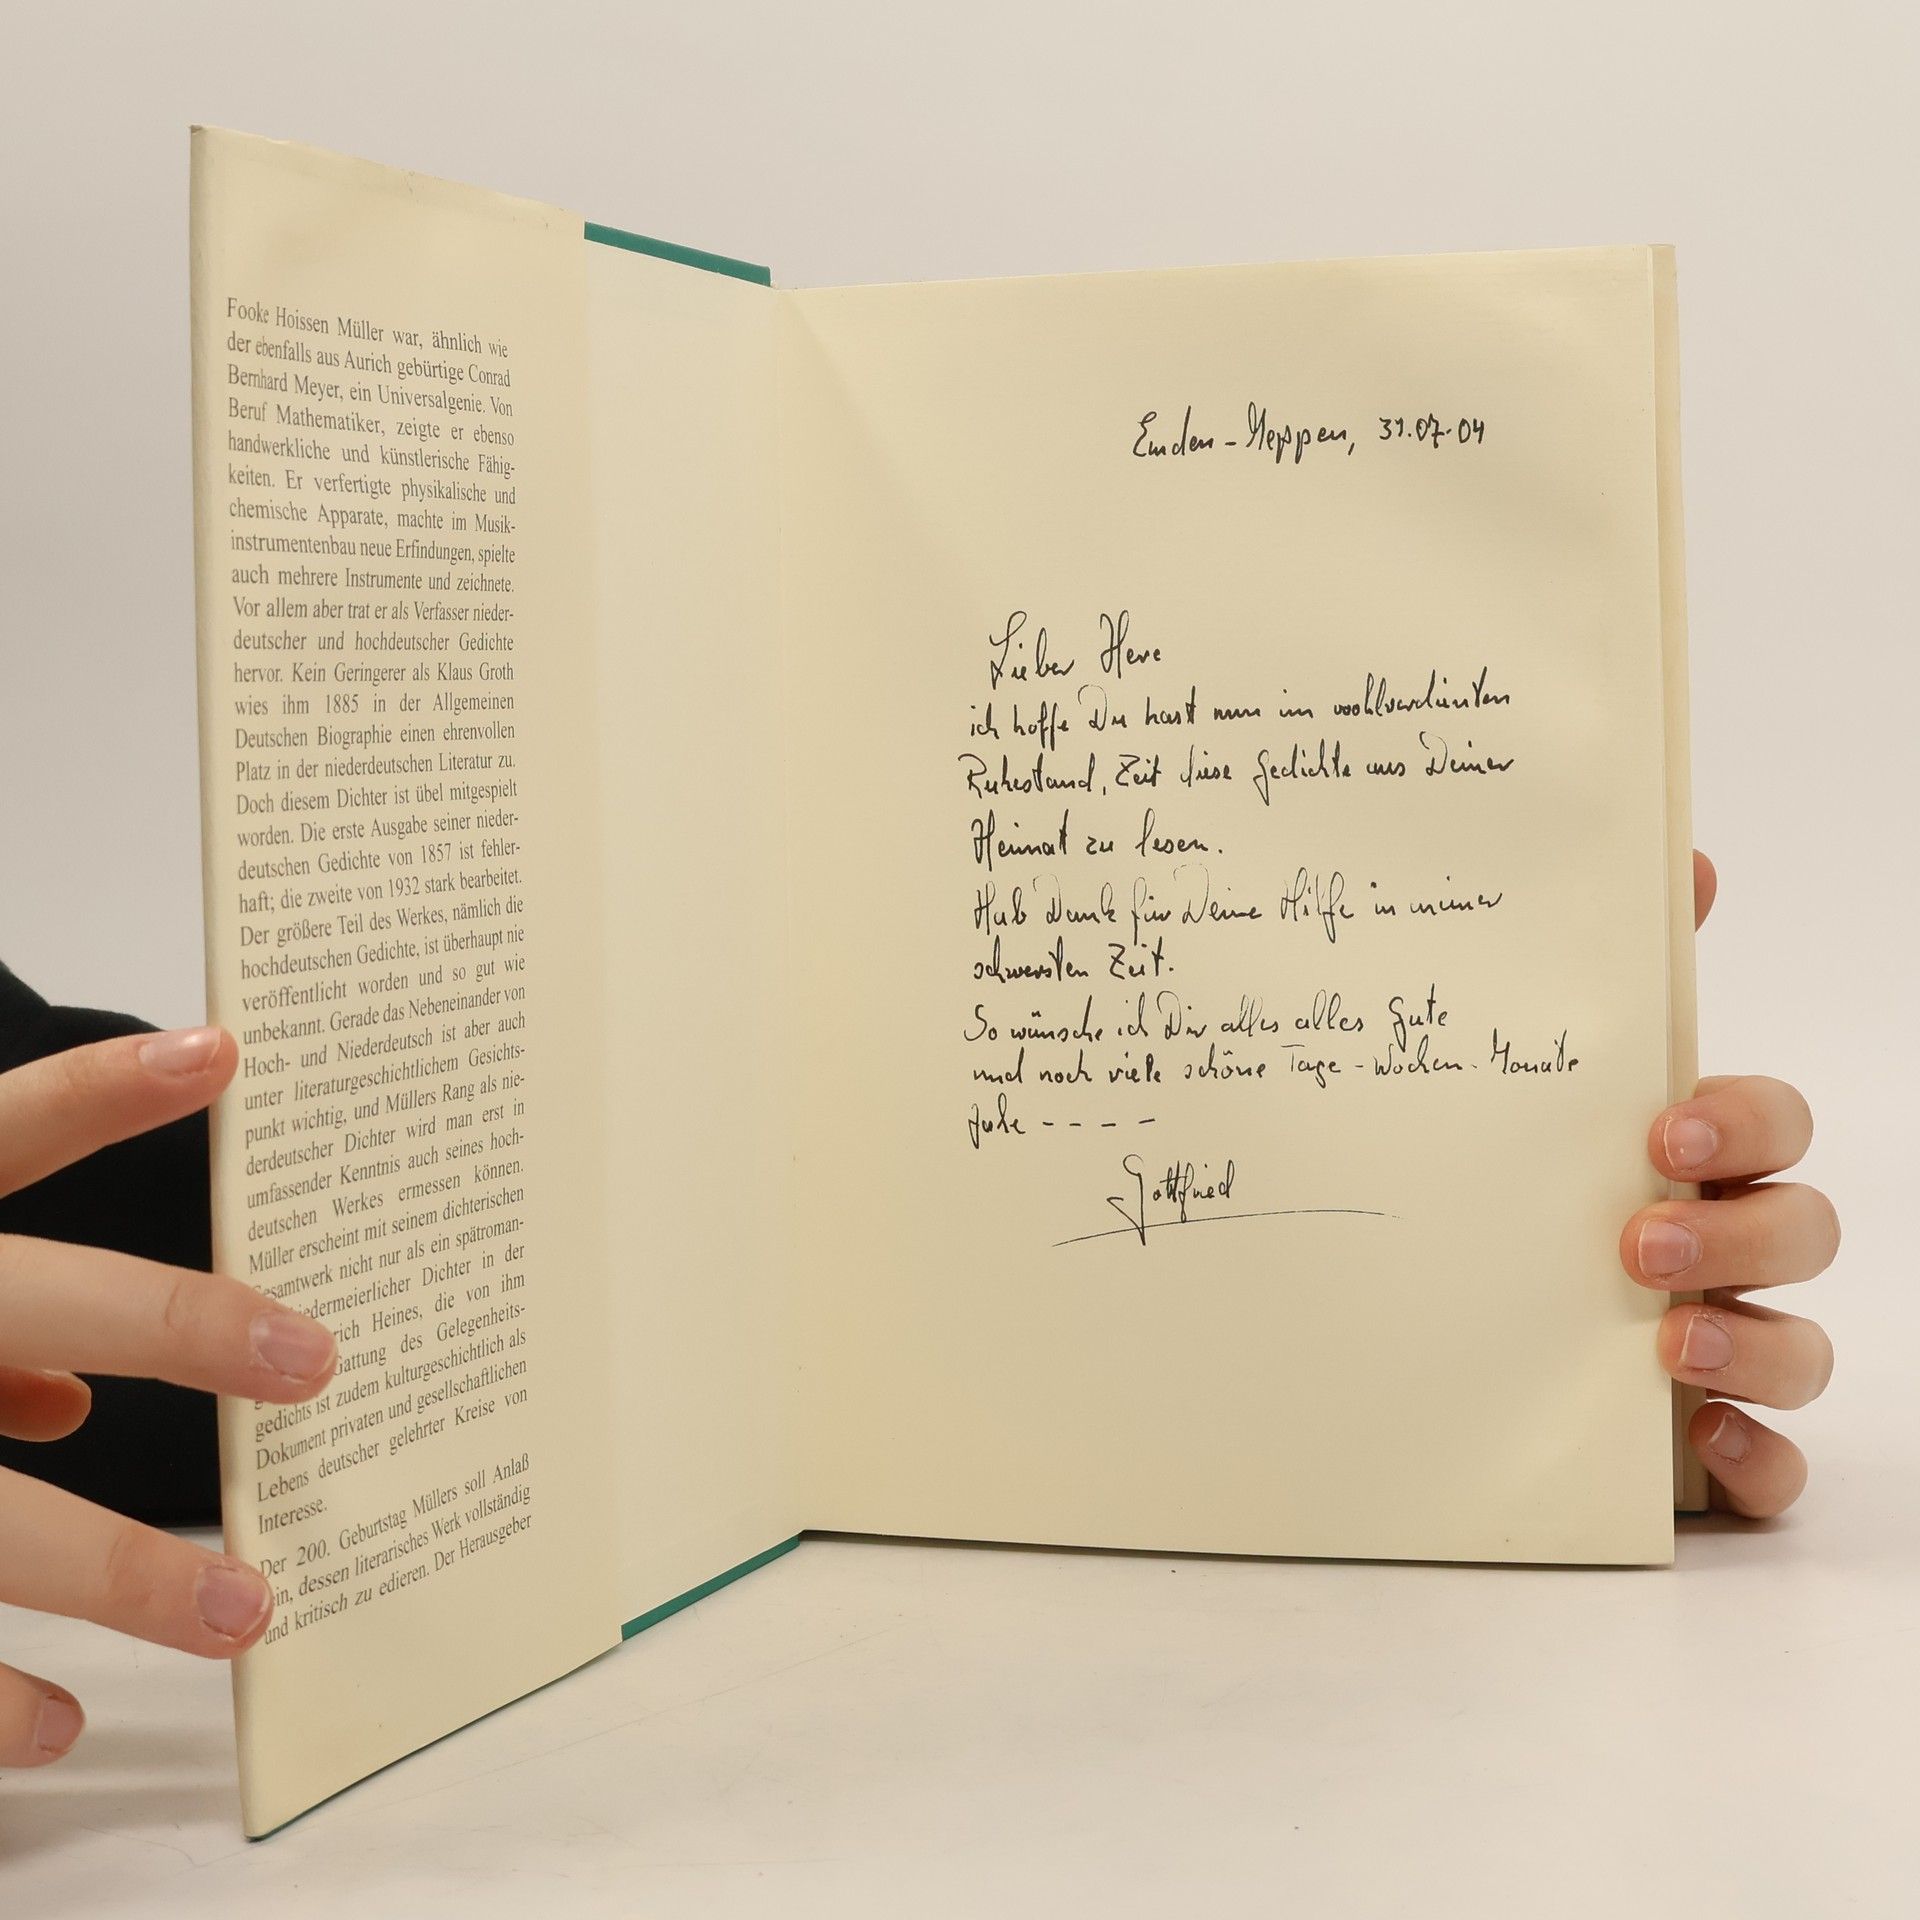 Fooke Hoissen Müller war, ähnlich wie
der ebenfalls aus Aurich gebürtige Conrad
Bernhard Meyer, ein Universalgenie. Von
Beruf Mathematiker, zeigte er ebenso
handwerkliche und künstlerische Fähig-
keiten. Er verfertigte physikalische und
chemische Apparate, machte im Musik-
instrumentenbau neue Erfindungen, spielte
auch mehrere Instrumente und zeichnete.
Vor allem aber trat er als Verfasser nieder-
deutscher und hochdeutscher Gedichte
hervor. Kein Geringerer als Klaus Groth
wies ihm 1885 in der Allgemeinen
Deutschen Biographie einen ehrenvollen
Platz in der niederdeutschen Literatur zu.
Doch diesem Dichter ist übel mitgespielt
worden. Die erste Ausgabe seiner nieder-
deutschen Gedichte von 1857 ist fehler-
haft; die zweite von 1932 stark bearbeitet.
Der größere Teil des Werkes, nämlich die
hochdeutschen Gedichte, ist überhaupt nie
veröffentlicht worden und so gut wie
unbekannt. Gerade das Nebeneinander von
Hoch- und Niederdeutsch ist aber auch
unter literaturgeschichtlichem Gesichts-
punkt wichtig, und Müllers Rang als nie-
derdeutscher Dichter wird man erst in
umfassender Kenntnis auch seines hoch-
deutschen Werkes ermessen können.
Müller erscheint mit seinem dichterischen
Gesamtwerk nicht nur als ein spätroman-
iedermeierlicher Dichter in der
rich Heines, die von ihm
Gattung des Gelegenheits-
gedichts ist zudem kulturgeschichtlich als
Dokument privaten und gesellschaftlichen
Lebens deutscher gelehrter Kreise von
Interesse.
Der 200. Geburtstag Müllers soll Anlaß
ein, dessen literarisches Werk vollständig
und kritisch zu edieren. Der Herausgeber
Emden-Meppen, 31.07.04
Lieber
ich hoffe Du hast nun im wohlverdienten
Ruhestand, Zeit diese Gedichte aus Deiner
Heimat zu lesen.
Hab Dank für Deine Hilfe in meiner
schwersten Zeit.
So wünsche ich Dir alles alles Gute
und noch viele schöne Tage - Wochen - Monate
Jahre - - - -
Gottfried